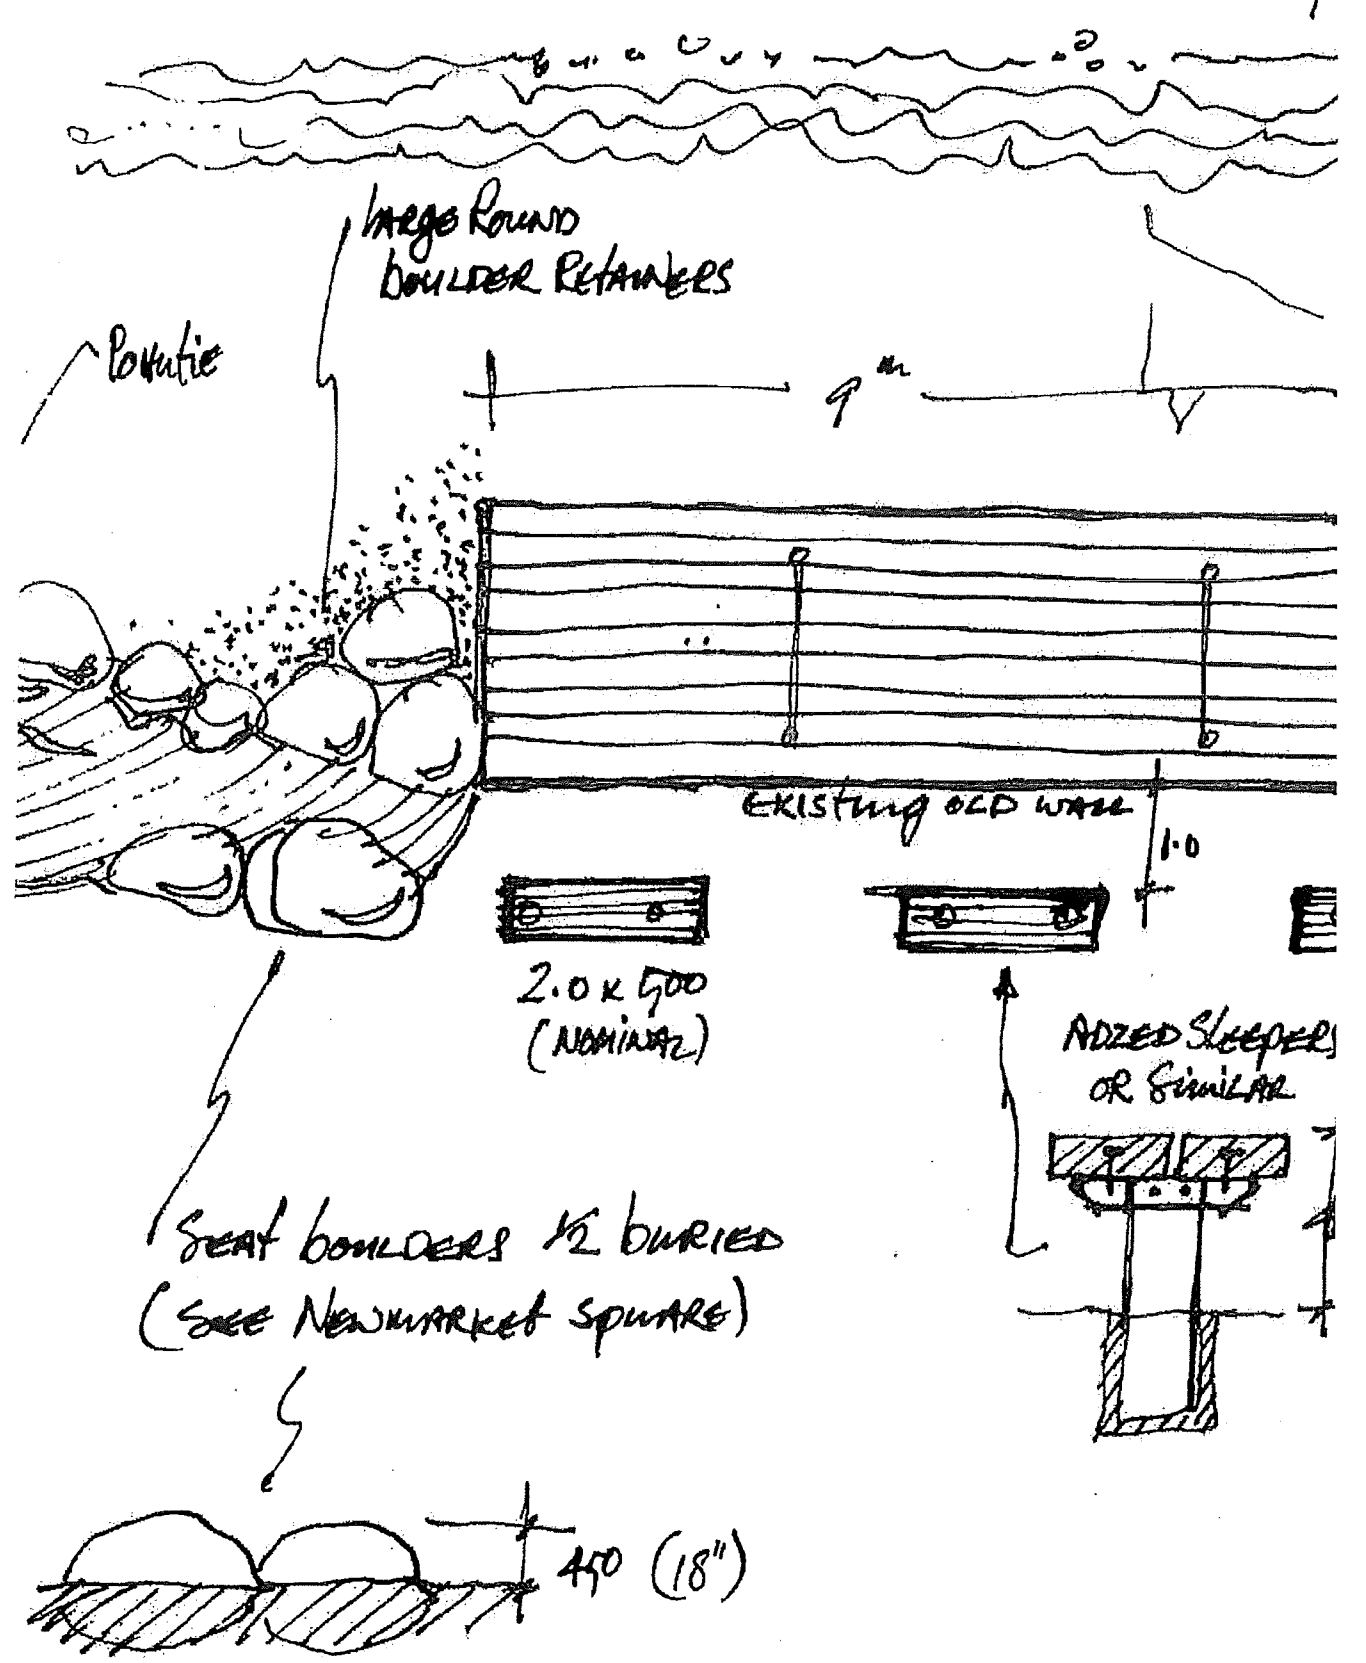 Large Round
boulder Retainers
9m
Existing old wall
1.0
2.0 x 500
(Nominal)
Adzed Sleepers
or Similar
Seat boulders 1/2 buried
(See Newmarket Square)
450 (18")